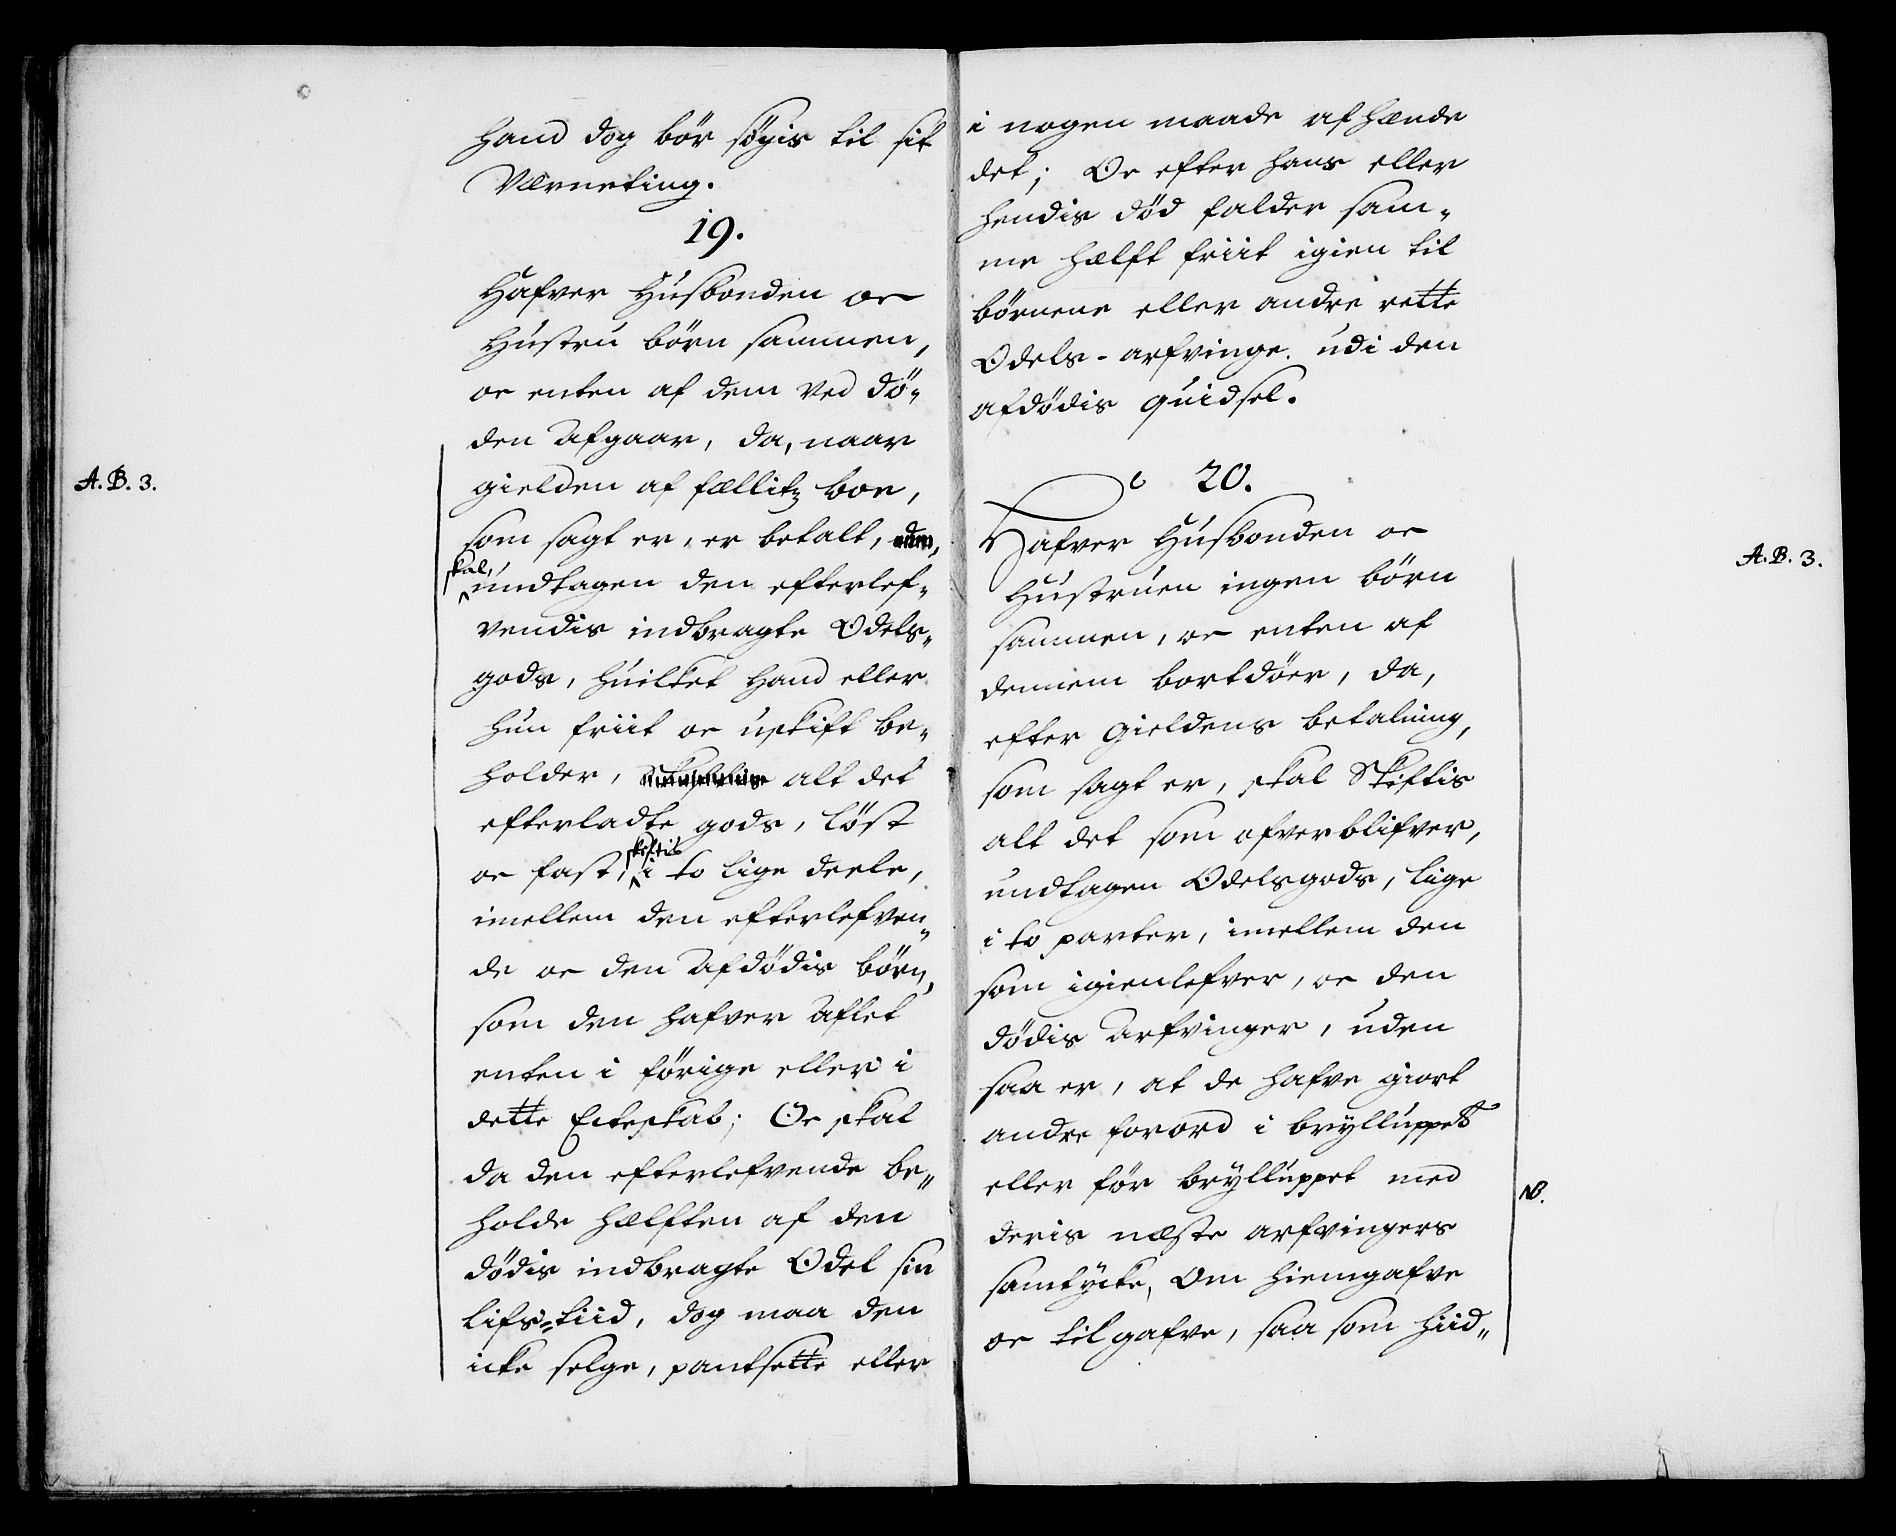 hand dog bör søgis til sit
Værneting.
19.
Hafver Husbonden oc
Hustru börn sammen,
oc enten af dem ved dö-
den Afgaar, da, naar
A. B. 3.
gielden af fællitz boe,
som sagt er, er betalt,
skal,
undtagen den efterlef-
vendis indbragte Odels-
gods, huilket hand eller
hun friit oc uskift be-
holder, alt det
efterladte gods, löst
skiftis
oc fast, i to lige deele,
imellem den efterlefven-
de oc den Afdødis börn,
som den hafver Aflet
enten i förige eller i
dette Ecteskab; Oc skal
da den efterlefvende be-
holde hælften af den
dødis indbragte Odel sin
lifs-tiid, dog maa den
icke selge, pantsette eller
i nogen maade afhænde
det; Oc efter hans eller
hendis død falder sam-
me hælft friit igien til
börnene eller andre rette
Odels-arfvinge udi den
afdødis quidsel.
20.
Hafver Husbonden oc
A. B. 3.
Hustruen ingen börn
sammen, oc enten af
dennem bortdöer, da,
efter Gieldens betalning,
som sagt er, skal Skiftis
alt det som ofverblifver,
undtagen Odelsgods, lige
i to parter, imellem den
som igienlefver, oc den
dödis Arfvinger, uden
saa er, at de hafve giort
andre forord i brylluppet
eller för brylluppet med
NB.
deris næste arfvingers
samtycke, Om hiemgafve
oc tilgafve, saa som hiid-